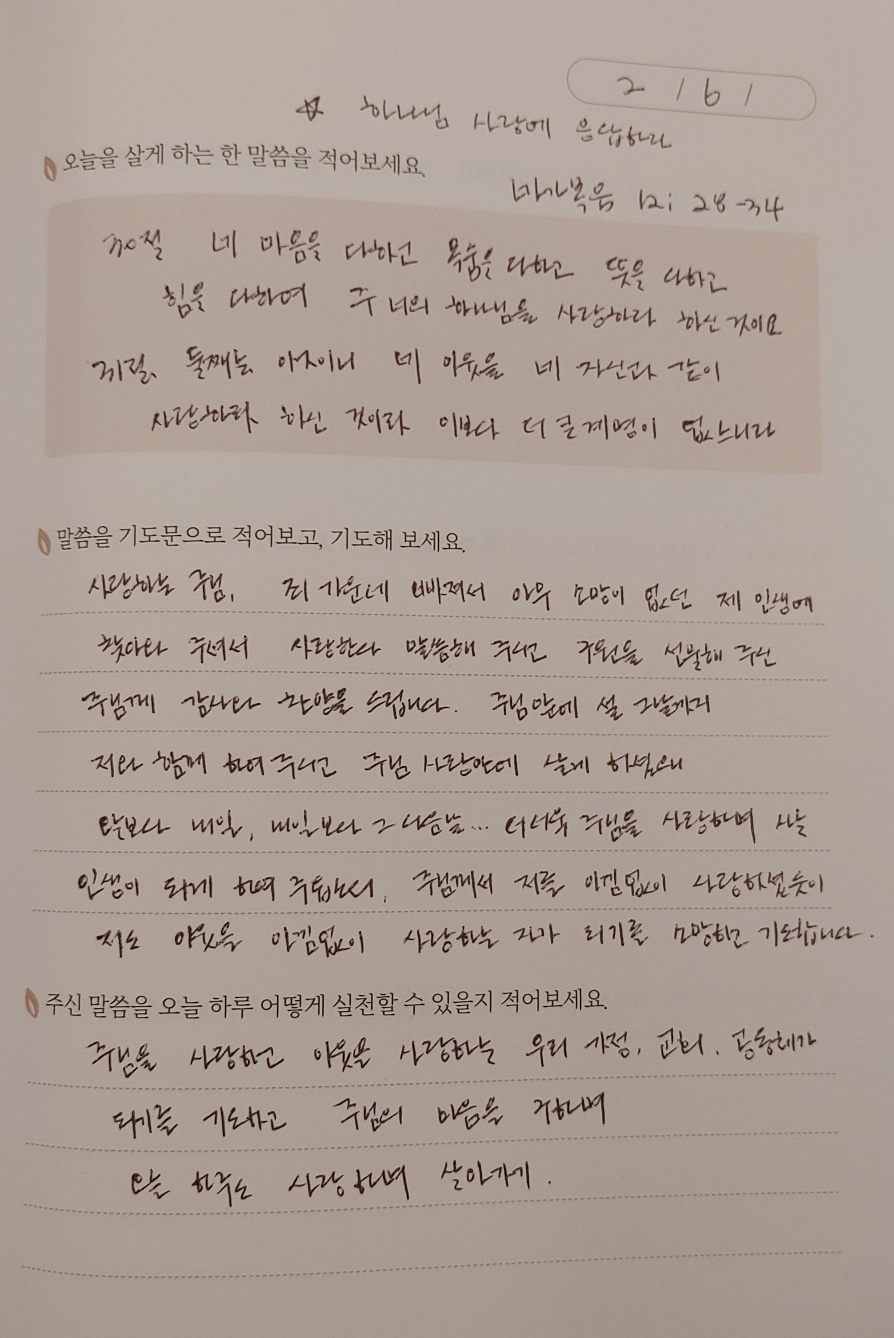 2 / 6 /
☆ 하나님 사랑에 응답하라
오늘을 살게 하는 한 말씀을 적어보세요.
마가복음 12: 28-34
30절 네 마음을 다하고 목숨을 다하고 뜻을 다하고
힘을 다하여 주 너의 하나님을 사랑하라 하신 것이요
31절, 둘째는 이것이니 네 이웃을 네 자신과 같이
사랑하라 하신 것이라 이보다 더 큰 계명이 없느니라
말씀을 기도문으로 적어보고, 기도해 보세요.
사랑하는 주님, 죄 가운데 빠져서 아무 소망이 없던 제 인생에
찾아와 주셔서 사랑한다 말씀해 주시고 구원을 선물해 주신
주님께 감사와 찬양을 드립니다. 주님앞에 설 그날까지
저와 함께 하여 주시고 주님 사랑안에 살게 하셔서
오늘보다 내일, 내일보다 그 다음날... 더더욱 주님을 사랑하며 사는
인생이 되게 하여 주옵소서. 주님께서 저를 아낌없이 사랑하셨듯이
저도 이웃을 아낌없이 사랑하는 자가 되기를 소망하고 기도합니다.
주신 말씀을 오늘 하루 어떻게 실천할 수 있을지 적어보세요.
주님을 사랑하고 이웃을 사랑하는 우리 가정, 교회, 공동체가
되기를 기도하고 주님의 마음을 구하며
오늘 하루도 사랑하며 살아가기.